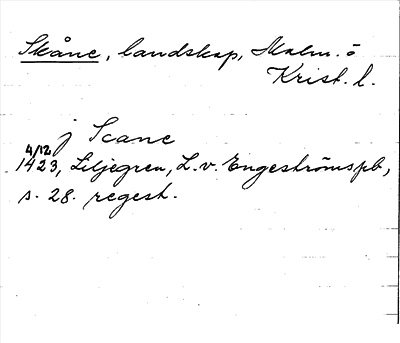 Skåne, landskap, Malm. ö
Krist. l.
j Scane
4/12
1423, Liljegren, L. v. Engeströms pb,
s. 28. regest.